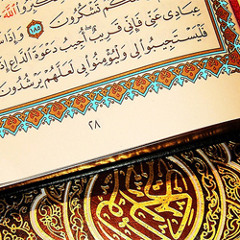 الله
تَشْكُرُونَ ١٨٥ وَإِذَا
عِبَادِى عَنِّى فَإِنِّى قَرِيبٌ أُجِيبُ دَعْوَةَ ٱلدَّاعِ
فَلْيَسْتَجِيبُوا۟ لِى وَلْيُؤْمِنُوا۟ بِى لَعَلَّهُمْ يَرْشُدُونَ
٢٨